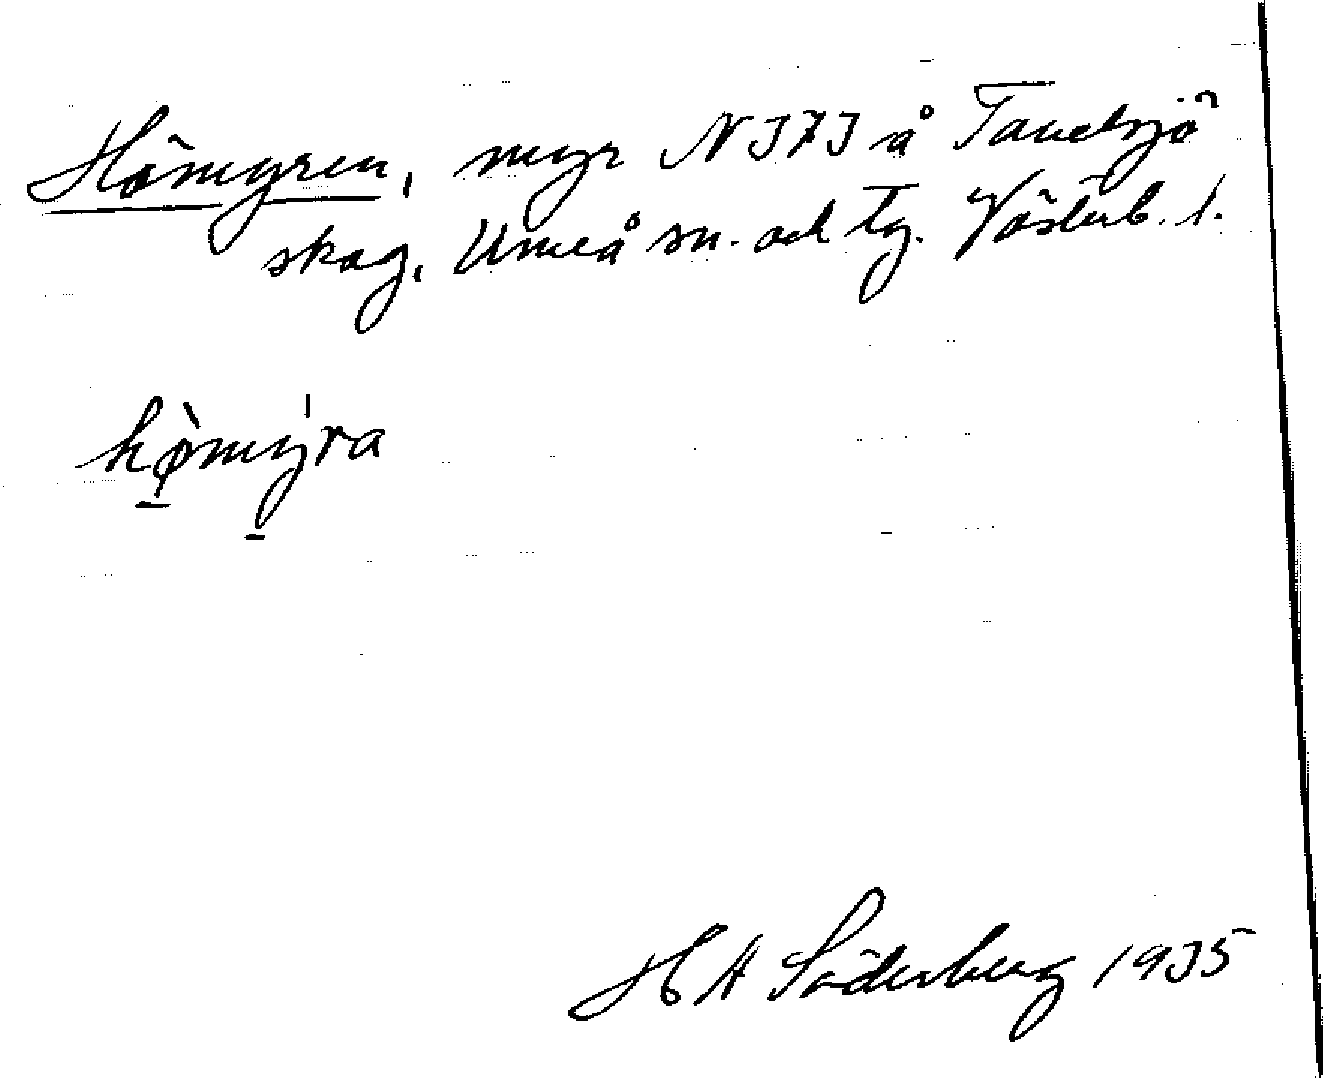 Hömyren, myr N373 å Tavelsjö
skog, Umeå sn. och tg. Västerb. l.
hö̀mýra
H A Söderberg 1935